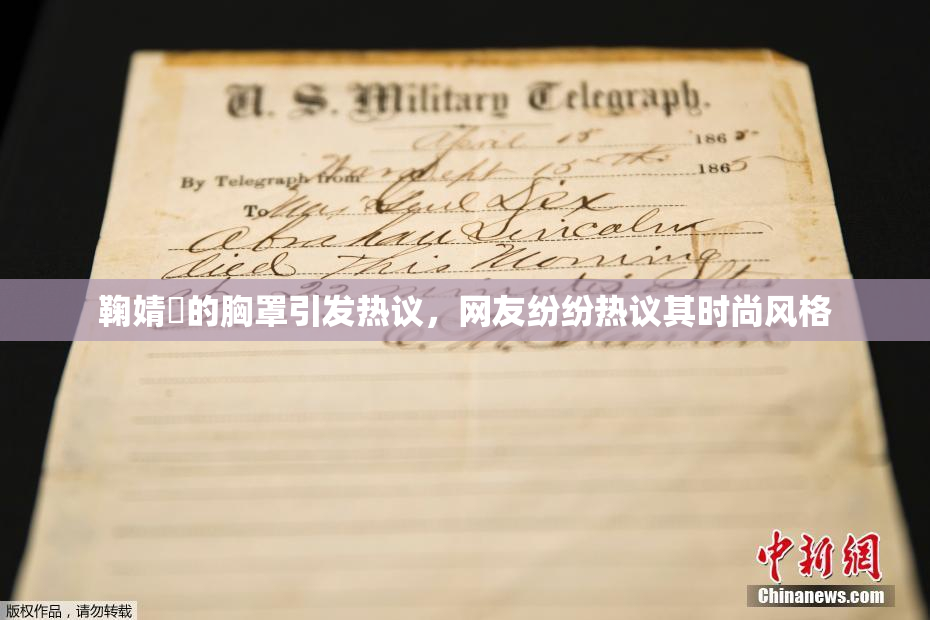 U. S. Military Telegraph.
April 15 1865
By Telegraph from War Dept 15th 1865
To Maj Genl Dix
Abraham Lincoln
died This Morning
at 22 minutes after
鞠婧的胸罩引发热议，网友纷纷热议其时尚风格
E. M. Stanton
中新网
Chinanews.com
版权作品，请勿转载